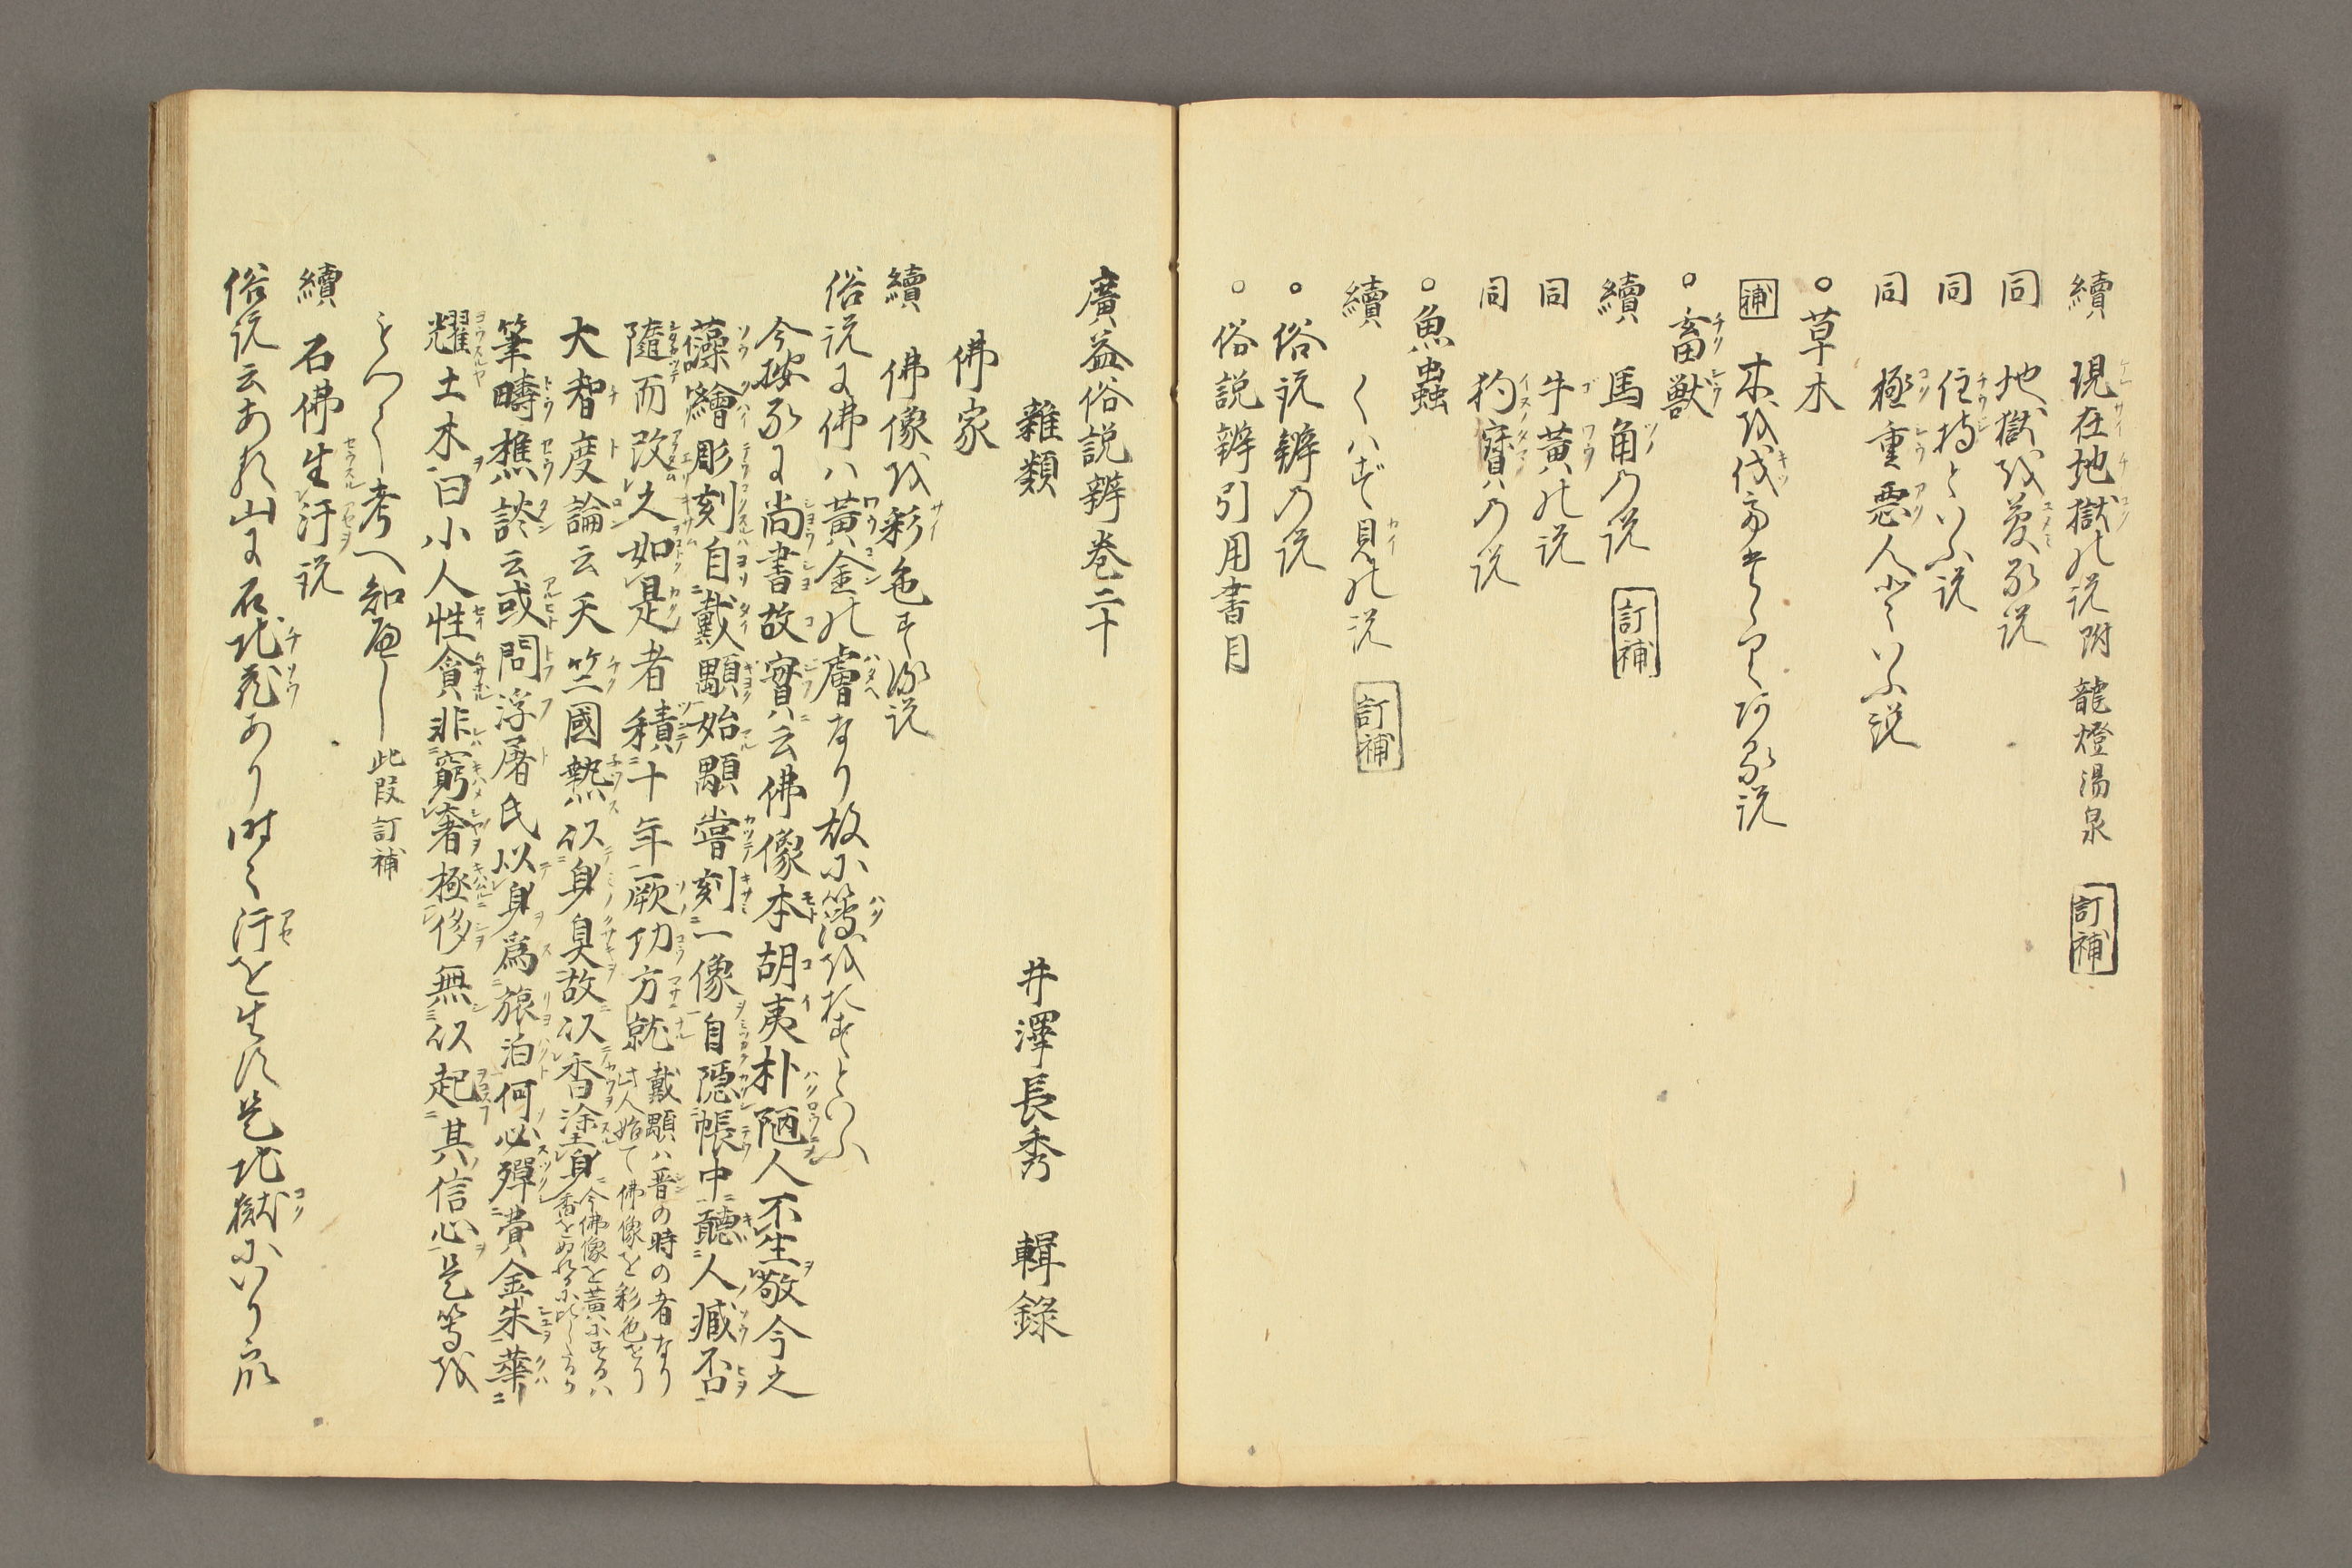 續　現在地獄の説附龍燈湯泉　訂補
同　地獄を夢る説
同　住持といふ説
同　極重悪人とといふ説
○草木
補　木を伐
○畜獣
續　馬角の説　訂補
同　牛黄の説
同　狗寳の説
○魚蟲
續　くはず貝の説　訂補
○俗説辨の説
○俗説辨引用書目
廣益俗説辨巻二十
雜類　井澤長秀　輯錄
佛家
續　佛像を彩色する説
俗説に佛ハ黄金の膚なり故に箔ををすといふ
今按るに尚書故實ニ云佛像本胡夷朴陋人不生敬今之
藻繪彫刻自戴顒始顒嘗刻一像自隱帳中聽人臧否
隨而改之如是者積十年厥功方就戴顒ハ晋の時の者なり
此人始て佛像を彩色せり
大智度論云天竺國熱以身臭故以香塗身今佛像を黄にするハ
香をぬれるに比したるか
筆疇樵談云或問浮屠氏以身爲旅泊何必殫費金朱華
耀土木曰小人性貪非窮奢極侈無以起其信心是等を
もつて考へ知べし此段訂補
續　石佛生汗説
俗説云ある山に石地蔵あり時々汗を生ず是地獄にいり